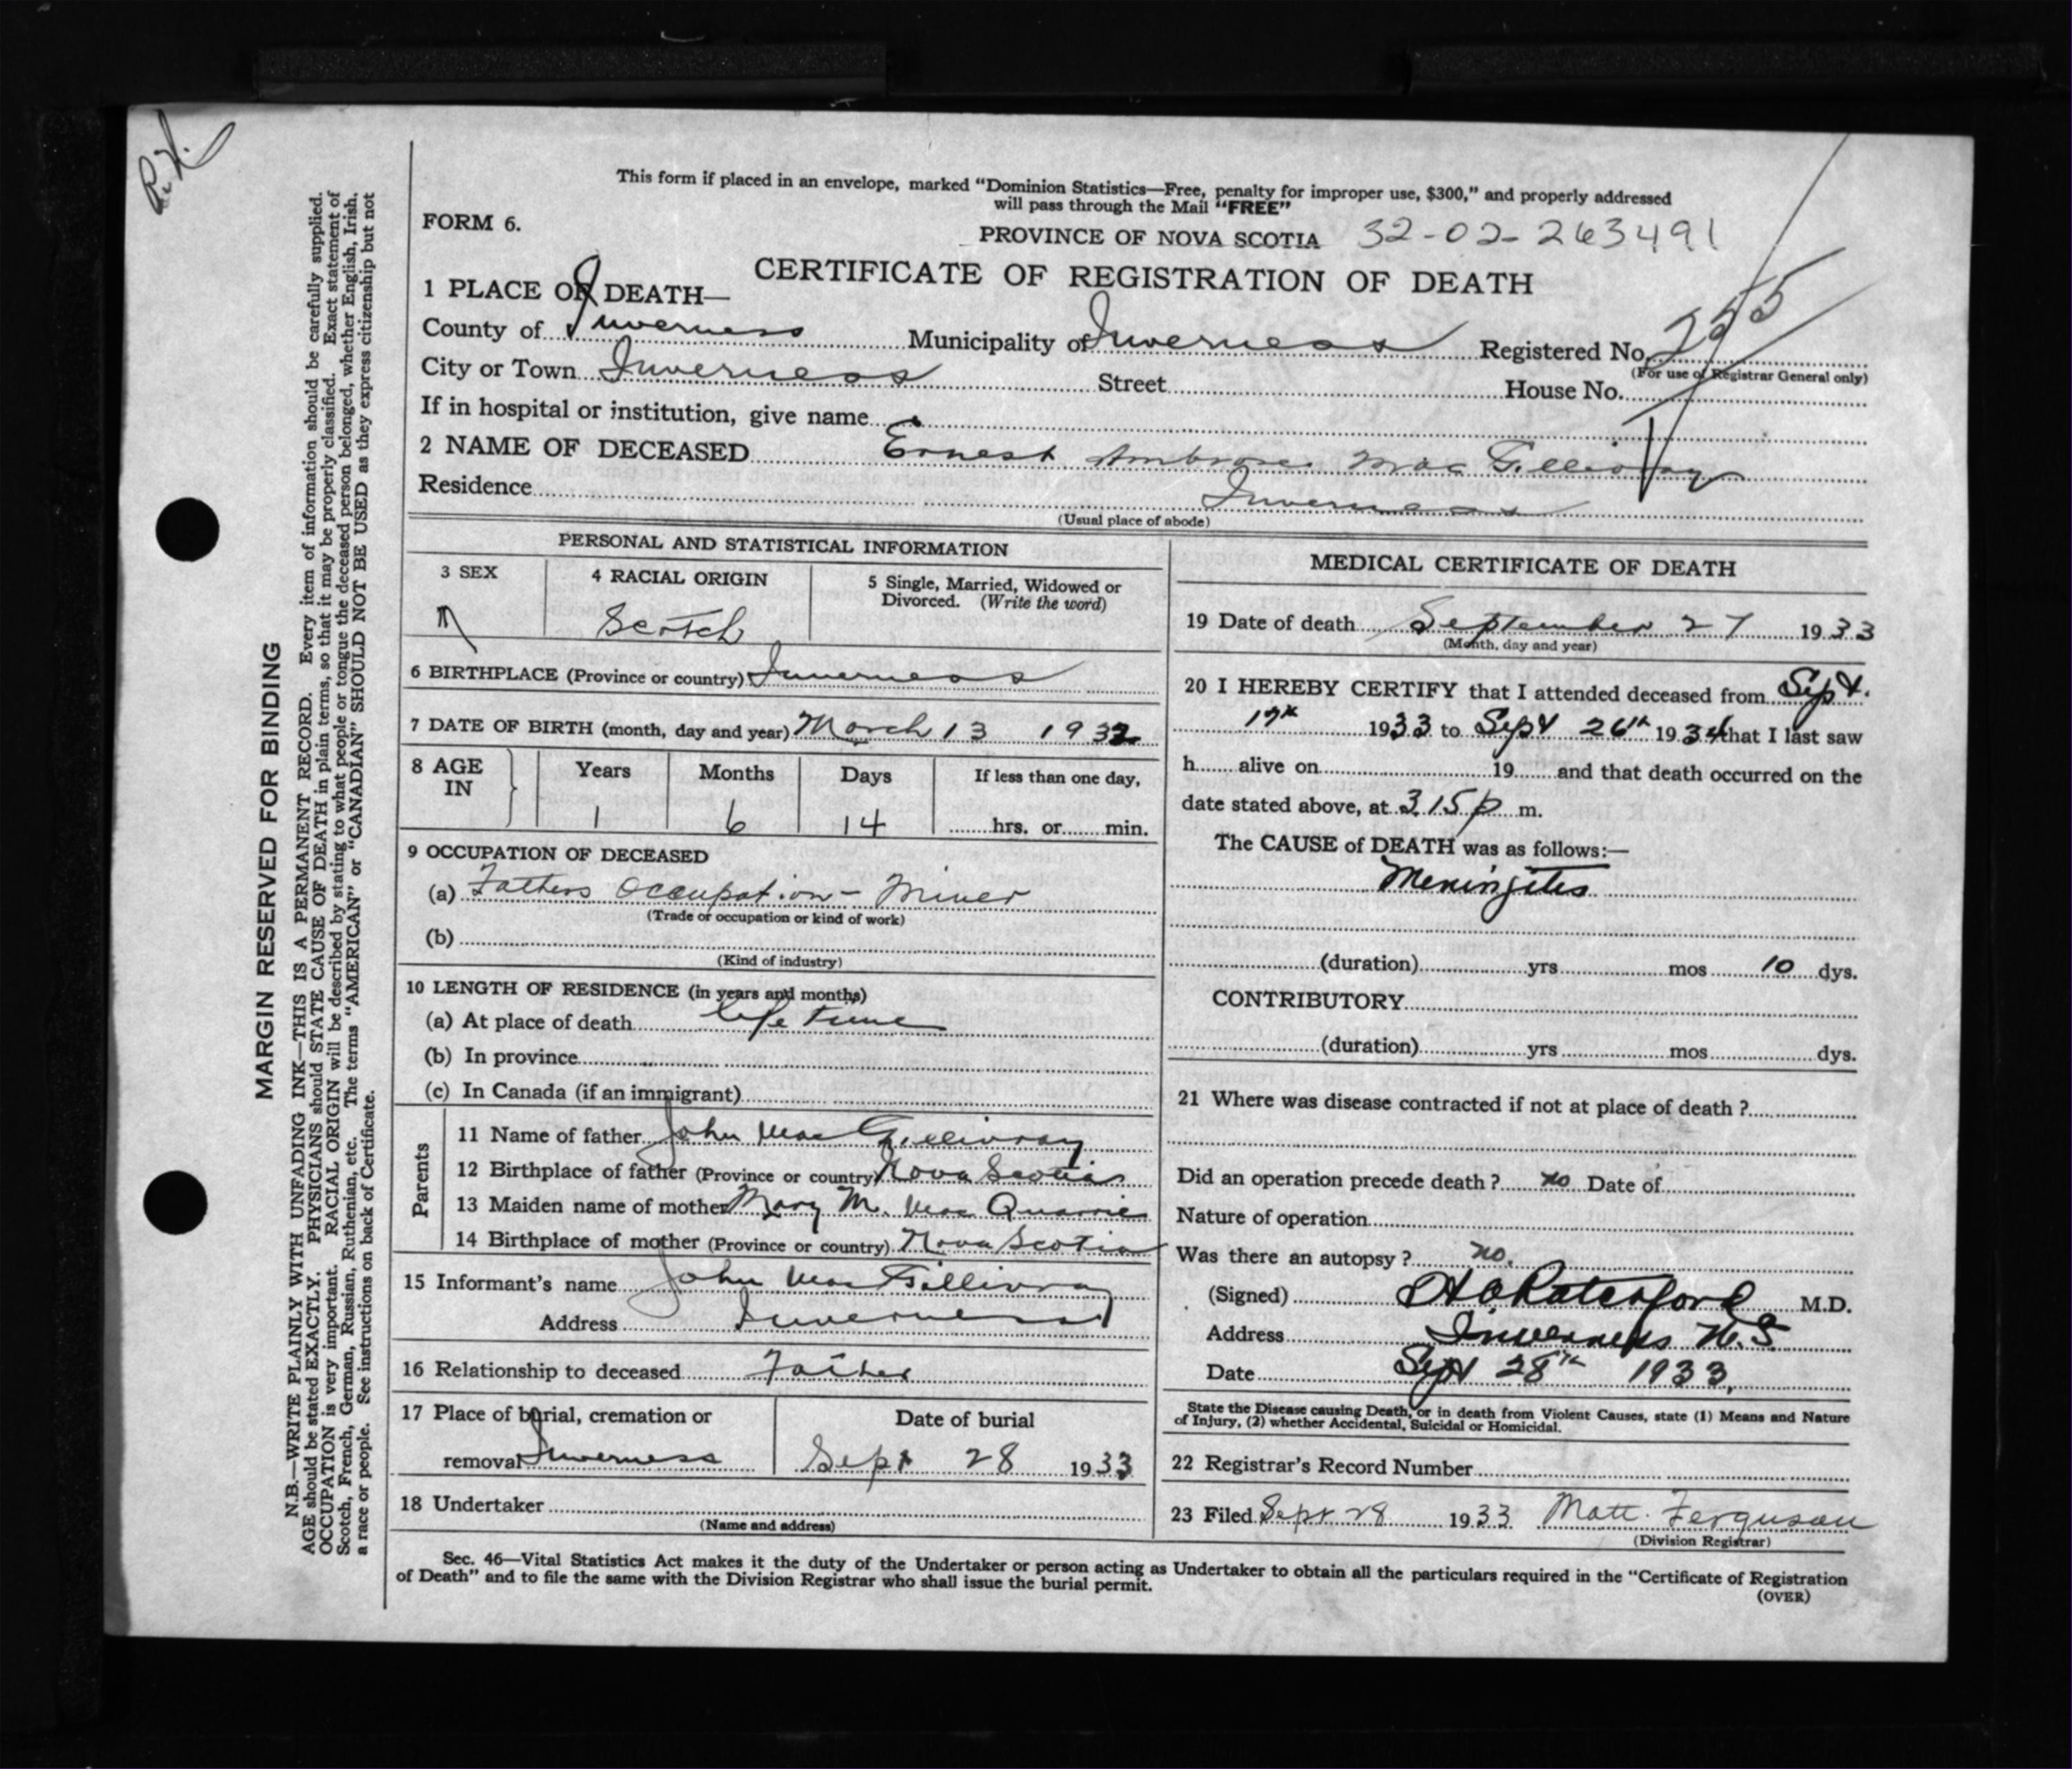 R.K.
This form if placed in an envelope, marked “Dominion Statistics—Free, penalty for improper use, $300,” and properly addressed
will pass through the Mail “FREE”
FORM 6.
PROVINCE OF NOVA SCOTIA 32-02-263491
CERTIFICATE OF REGISTRATION OF DEATH
1 PLACE OF DEATH—
County of Inverness Municipality of Inverness Registered No. 255
(For use of Registrar General only)
City or Town Inverness Street House No.
If in hospital or institution, give name
2 NAME OF DECEASED Ernest Ambrose MacGillivray
Residence Inverness
(Usual place of abode)
PERSONAL AND STATISTICAL INFORMATION
3 SEX 4 RACIAL ORIGIN 5 Single, Married, Widowed or
Divorced. (Write the word)
M Scotch
6 BIRTHPLACE (Province or country) Inverness
7 DATE OF BIRTH (month, day and year) March 13 1932
8 AGE IN Years Months Days If less than one day,
1 6 14 hrs. or min.
9 OCCUPATION OF DECEASED
(a) Fathers Occupation - Miner
(Trade or occupation or kind of work)
(b)
(Kind of industry)
10 LENGTH OF RESIDENCE (in years and months)
(a) At place of death life time
(b) In province
(c) In Canada (if an immigrant)
Parents
11 Name of father John MacGillivray
12 Birthplace of father (Province or country) Nova Scotia
13 Maiden name of mother Mary M. MacQuarrie
14 Birthplace of mother (Province or country) Nova Scotia
15 Informant’s name John MacGillivray
Address Inverness
16 Relationship to deceased Father
17 Place of burial, cremation or Date of burial
removal Inverness Sept 28 1933
18 Undertaker
(Name and address)
MEDICAL CERTIFICATE OF DEATH
19 Date of death September 27 1933
(Month, day and year)
20 I HEREBY CERTIFY that I attended deceased from Sept.
17th 1933 to Sept 26th 1934 that I last saw
h alive on 19 and that death occurred on the
date stated above, at 3.15 p m.
The CAUSE of DEATH was as follows:—
Meningitis
(duration) yrs mos 10 dys.
CONTRIBUTORY
(duration) yrs mos dys.
21 Where was disease contracted if not at place of death ?
Did an operation precede death ? no Date of
Nature of operation
Was there an autopsy ? no.
(Signed) M.D.
Address Inverness N.S
Date Sept 28th 1933.
State the Disease causing Death, or in death from Violent Causes, state (1) Means and Nature
of Injury, (2) whether Accidental, Suicidal or Homicidal.
22 Registrar’s Record Number
23 Filed Sept 28 1933 Matt. Ferguson
(Division Registrar)
Sec. 46—Vital Statistics Act makes it the duty of the Undertaker or person acting as Undertaker to obtain all the particulars required in the “Certificate of Registration
of Death” and to file the same with the Division Registrar who shall issue the burial permit.
(OVER)
MARGIN RESERVED FOR BINDING
N.B.—WRITE PLAINLY WITH UNFADING INK—THIS IS A PERMANENT RECORD. Every item of information should be carefully supplied.
AGE should be stated EXACTLY. PHYSICIANS should STATE CAUSE OF DEATH in plain terms, so that it may be properly classified. Exact statement of
OCCUPATION is very important. RACIAL ORIGIN will be described by stating to what people or tongue the deceased person belonged, whether English, Irish,
Scotch, French, German, Russian, Ruthenian, etc. The terms “AMERICAN” or “CANADIAN” SHOULD NOT BE USED as they express citizenship but not
a race or people. See instructions on back of Certificate.